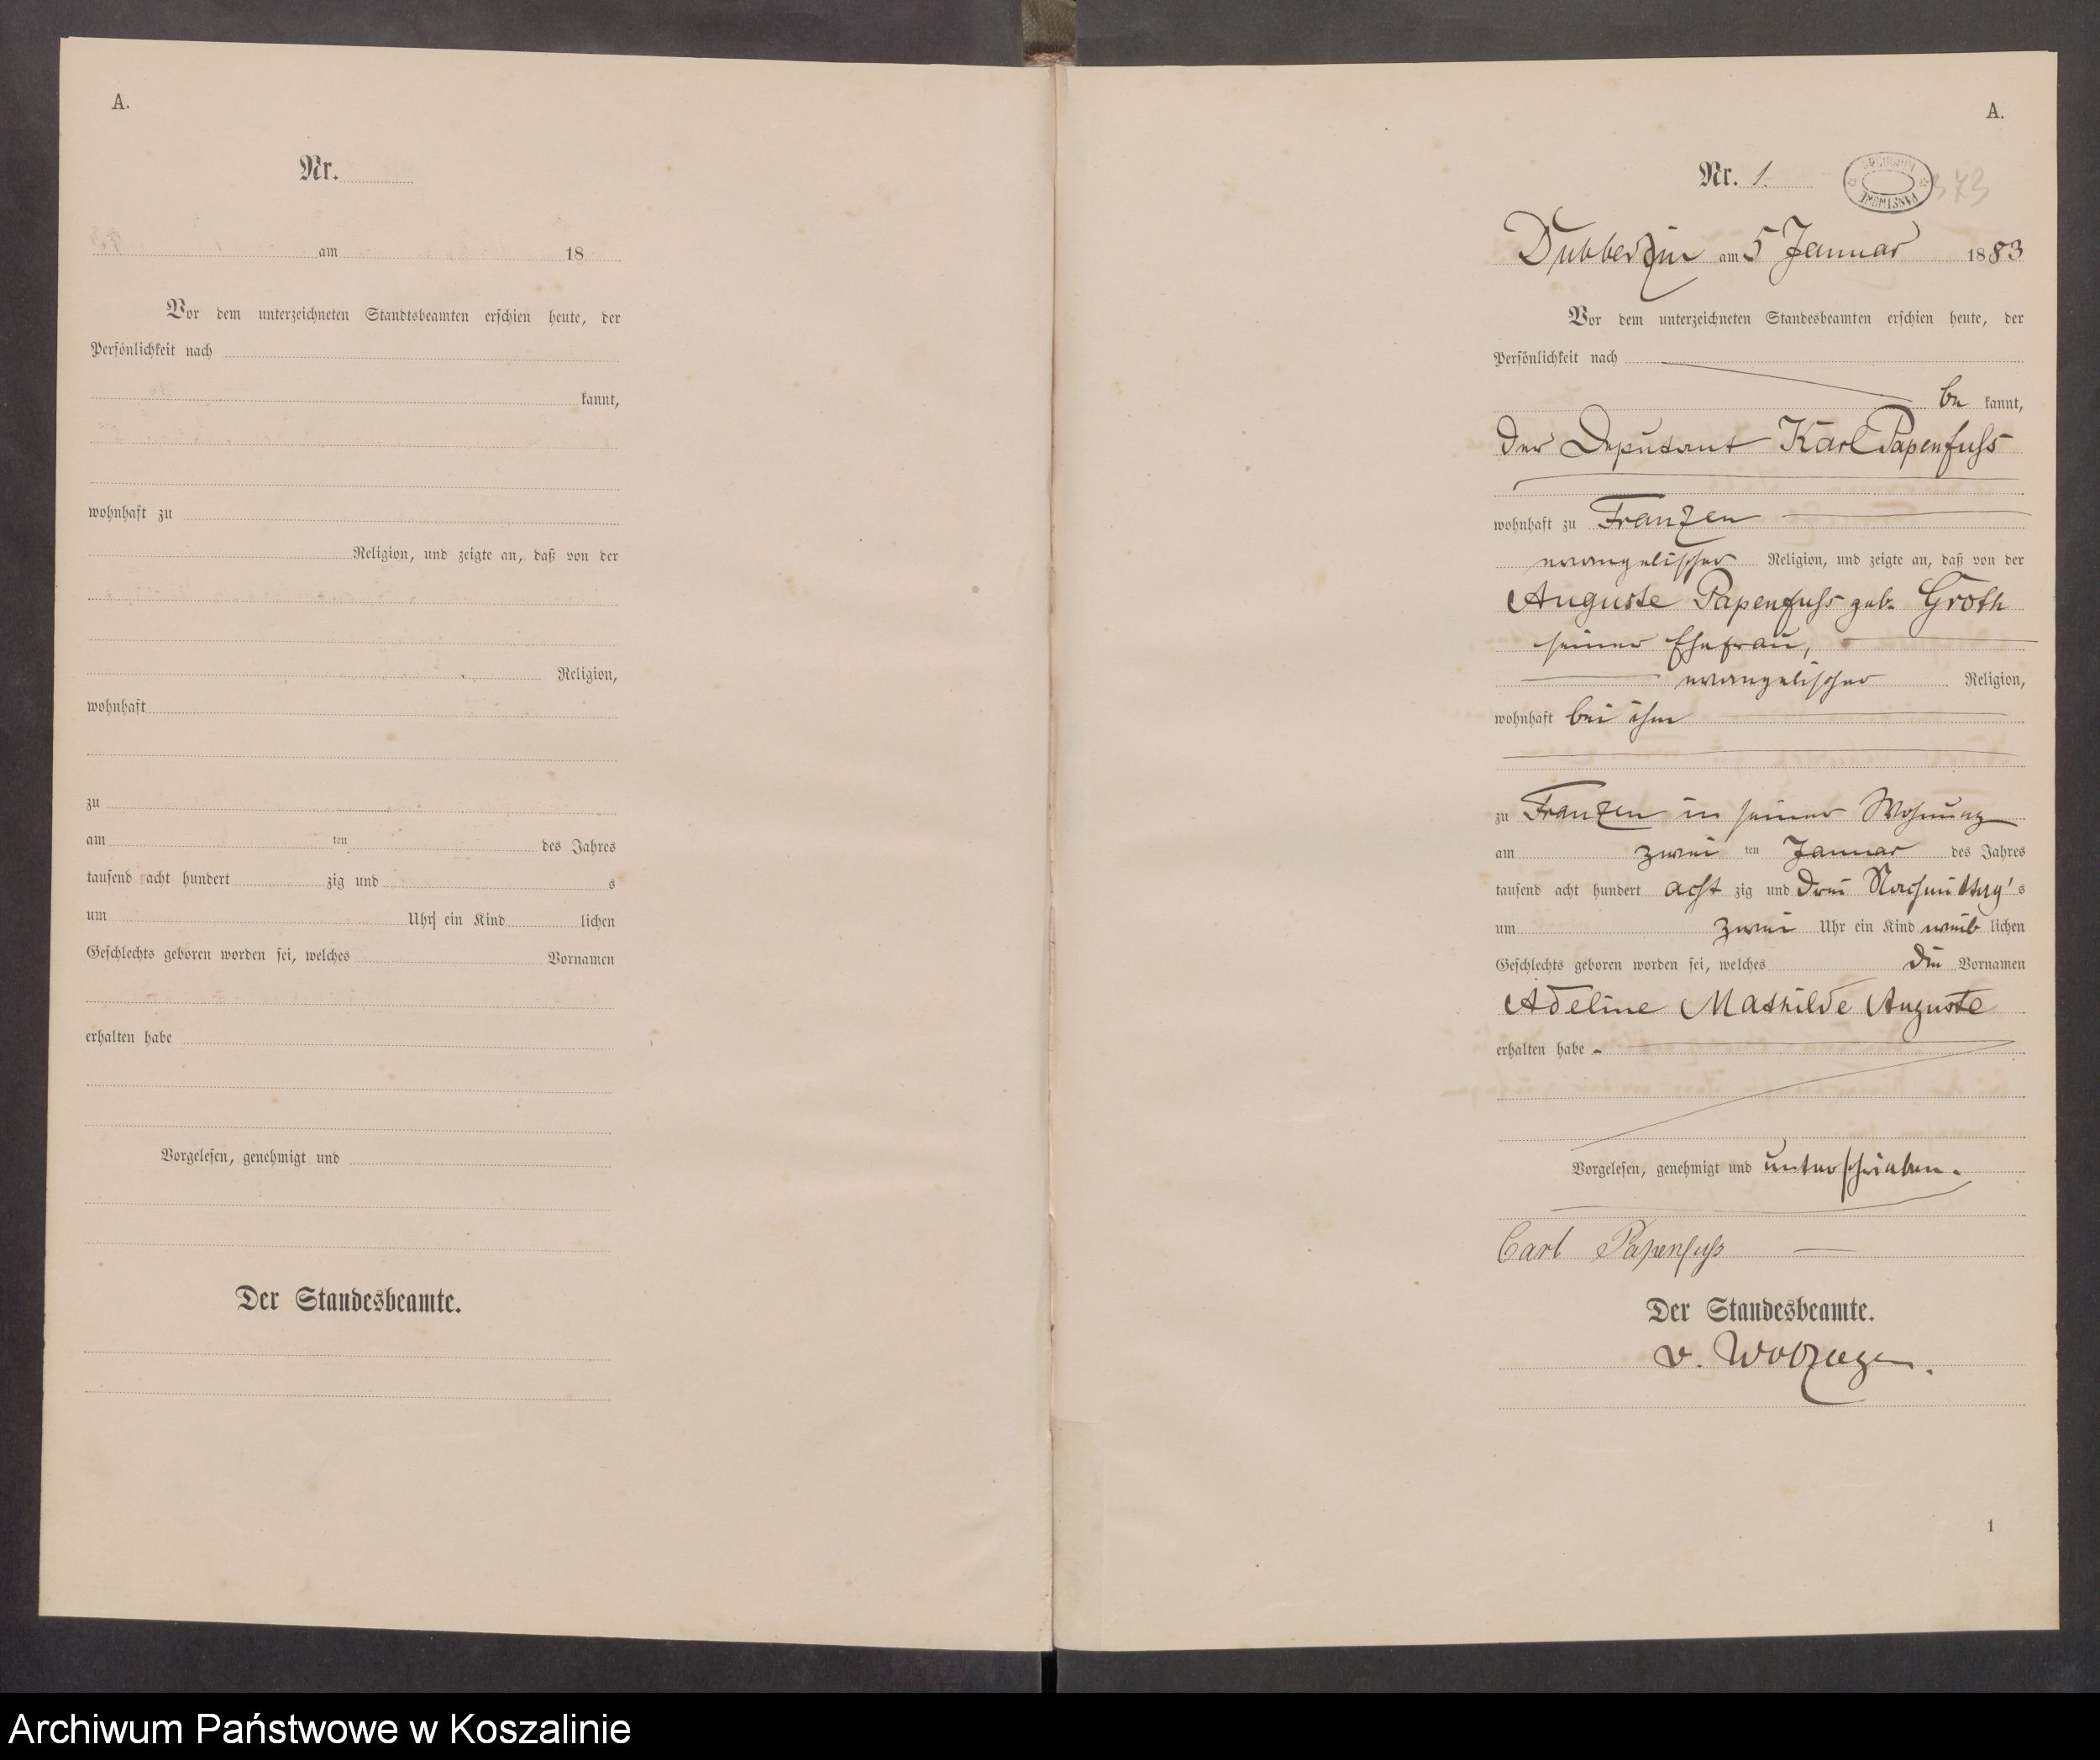 A.
Nr.
am 18
Vor dem unterzeichneten Standtsbeamten erschien heute, der
Persönlichkeit nach
kannt,
wohnhaft zu
Religion, und zeigte an, daß von der
Religion,
wohnhaft
zu
am ten des Jahres
tausend acht hundert zig und s
um Uhr ein Kind lichen
Geschlechts geboren worden sei, welches Vornamen
erhalten habe
Vorgelesen, genehmigt und
Der Standesbeamte.
A.
Nr. 1.
ARCHIWUM PAŃSTWOWE
373
Dubberzin am 5 Januar 1883
Vor dem unterzeichneten Standesbeamten erschien heute, der
Persönlichkeit nach
be kannt,
der Deputant Karl Papenfuss
wohnhaft zu Franzen
evangelischer Religion, und zeigte an, daß von der
Auguste Papenfuss geb. Groth
seiner Ehefrau,
evangelischer Religion,
wohnhaft bei ihm
zu Franzen in seiner Wohnung
am zwei ten Januar des Jahres
tausend acht hundert acht zig und drei Nachmittag's
um zwei Uhr ein Kind weib lichen
Geschlechts geboren worden sei, welches die Vornamen
Adeline Mathilde Auguste
erhalten habe -
Vorgelesen, genehmigt und unterschrieben.
Carl Papenfuß
Der Standesbeamte.
v. Wolzogen.
1
Archiwum Państwowe w Koszalinie